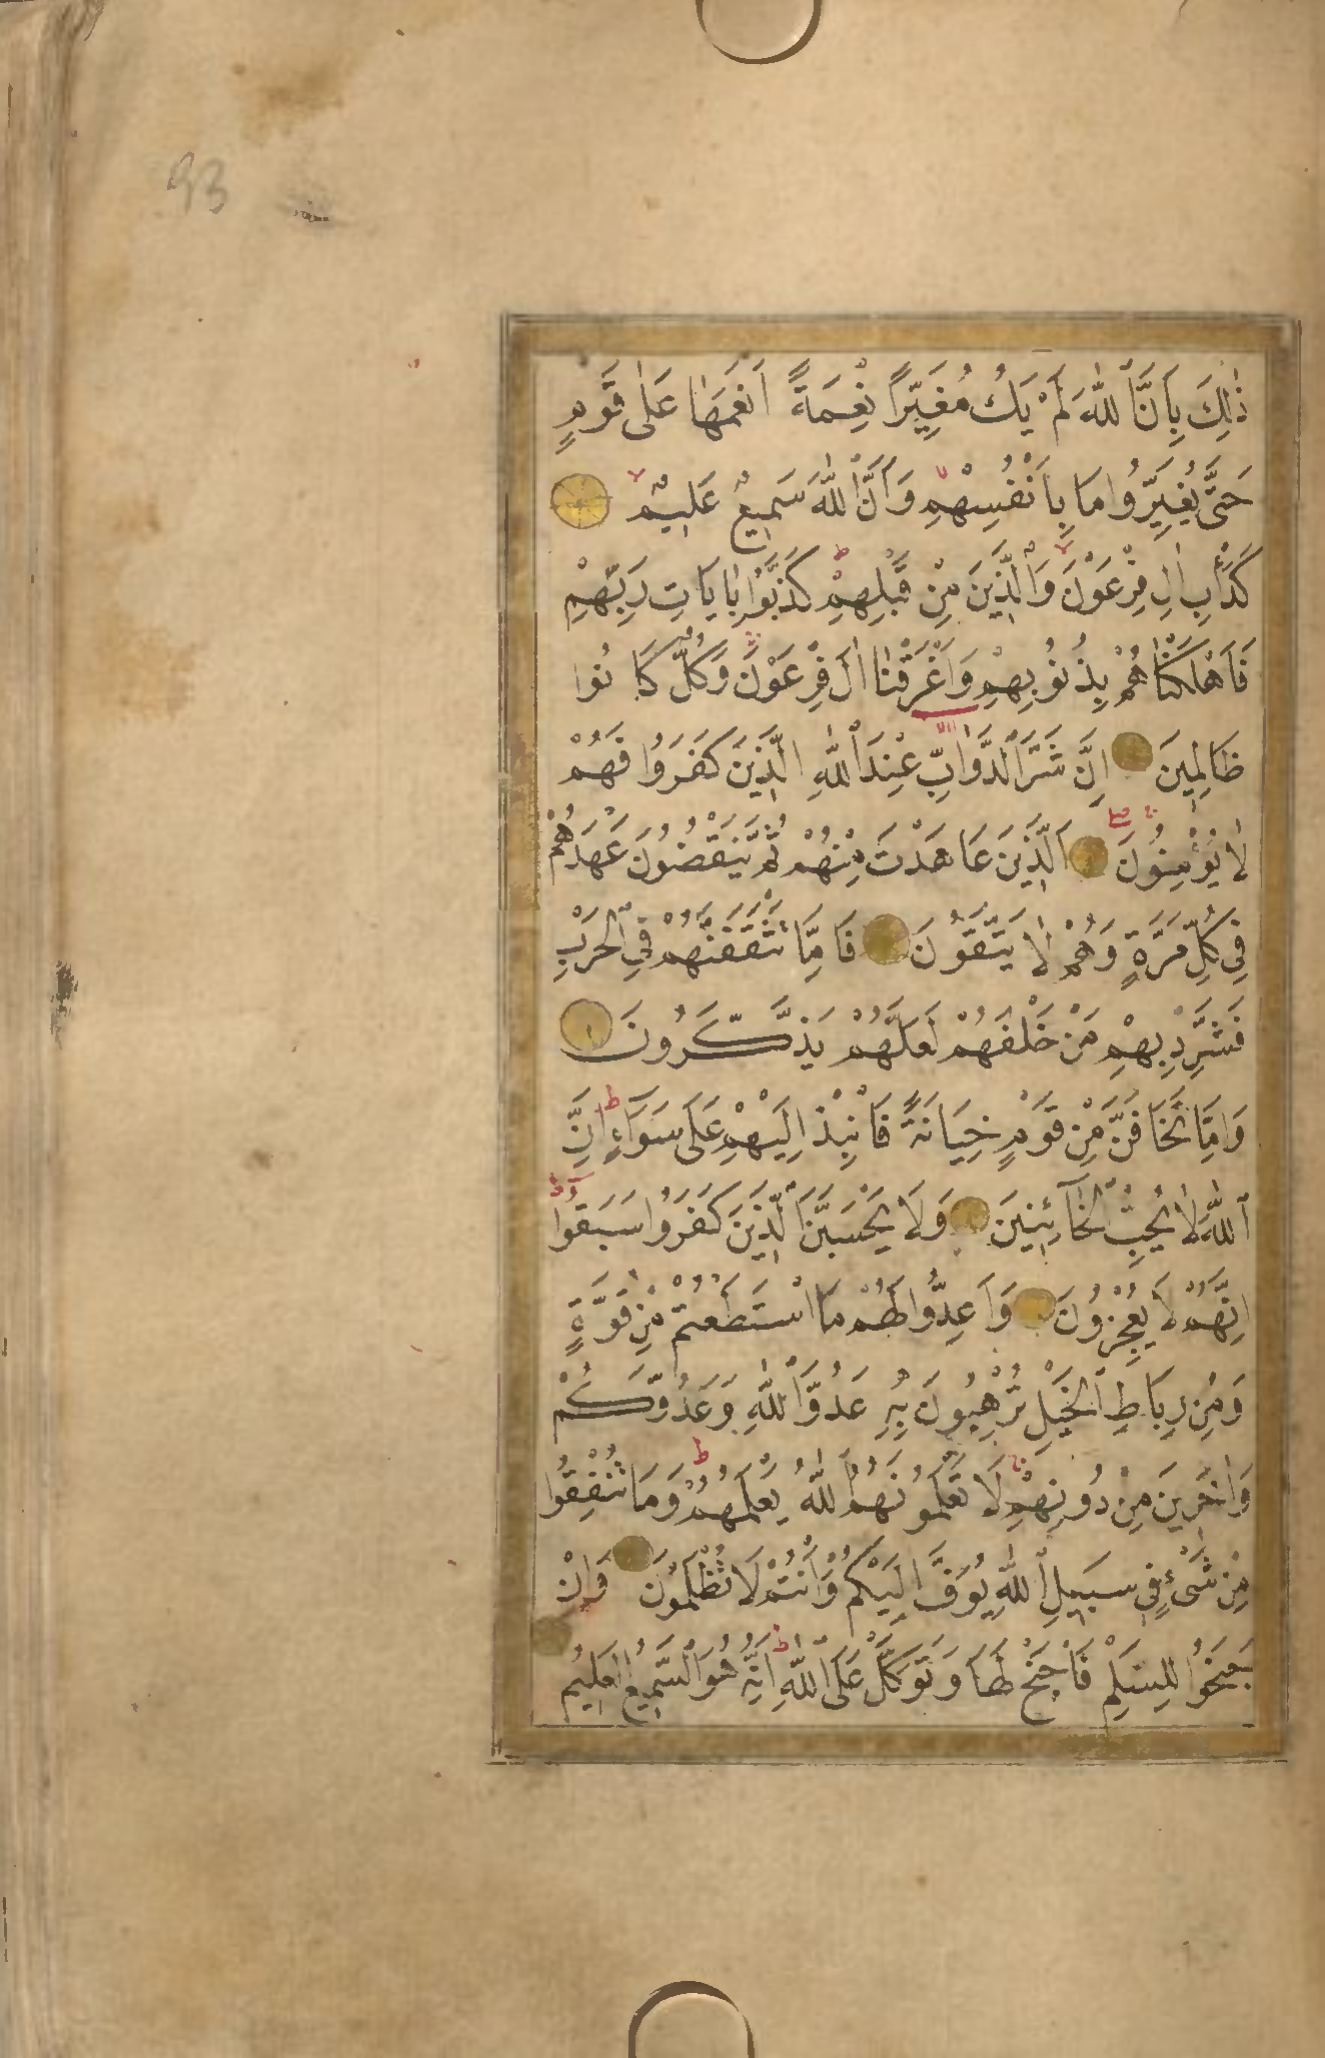 93
ذٰلِكَ بِاَنَّ ٱللّٰهَ لَمْ يَكُ مُغَيِّرًا نِعْمَةً اَنْعَمَهَا عَلٰى قَوْمٍ
حَتّٰى يُغَيِّرُوا مَا بِاَنْفُسِهِمْ وَاَنَّ ٱللّٰهَ سَمِيعٌ عَلِيمٌ
كَدَأْبِ اٰلِ فِرْعَوْنَ وَٱلَّذِينَ مِنْ قَبْلِهِمْ كَذَّبُوا بِاٰيَاتِ رَبِّهِمْ
فَاَهْلَكْنَاهُمْ بِذُنُوبِهِمْ وَاَغْرَقْنَا اٰلَ فِرْعَوْنَ وَكُلٌّ كَانُوا
ظَالِمِينَ اِنَّ شَرَّ ٱلدَّوَابِّ عِنْدَ ٱللّٰهِ الَّذِينَ كَفَرُوا فَهُمْ
لَا يُؤْمِنُونَ اَلَّذِينَ عَاهَدْتَ مِنْهُمْ ثُمَّ يَنْقُضُونَ عَهْدَهُمْ
فِي كُلِّ مَرَّةٍ وَهُمْ لَا يَتَّقُونَ فَاِمَّا تَثْقَفَنَّهُمْ فِي ٱلْحَرْبِ
فَشَرِّدْ بِهِمْ مَنْ خَلْفَهُمْ لَعَلَّهُمْ يَذَّكَّرُونَ
وَاِمَّا تَخَافَنَّ مِنْ قَوْمٍ خِيَانَةً فَانْبِذْ اِلَيْهِمْ عَلٰى سَوَاءٍ اِنَّ
ٱللّٰهَ لَا يُحِبُّ ٱلْخَائِنِينَ وَلَا يَحْسَبَنَّ ٱلَّذِينَ كَفَرُوا سَبَقُوا
اِنَّهُمْ لَا يُعْجِزُونَ وَاَعِدُّوا لَهُمْ مَا اسْتَطَعْتُمْ مِنْ قُوَّةٍ
وَمِنْ رِبَاطِ ٱلْخَيْلِ تُرْهِبُونَ بِهِ عَدُوَّ ٱللّٰهِ وَعَدُوَّكُمْ
وَاٰخَرِينَ مِنْ دُونِهِمْ لَا تَعْلَمُونَهُمُ ٱللّٰهُ يَعْلَمُهُمْ وَمَا تُنْفِقُوا
مِنْ شَيْءٍ فِي سَبِيلِ ٱللّٰهِ يُوَفَّ اِلَيْكُمْ وَاَنْتُمْ لَا تُظْلَمُونَ وَاِنْ
جَنَحُوا لِلسَّلْمِ فَاجْنَحْ لَهَا وَتَوَكَّلْ عَلَى ٱللّٰهِ اِنَّهُ هُوَ ٱلسَّمِيعُ الْعَلِيمُ